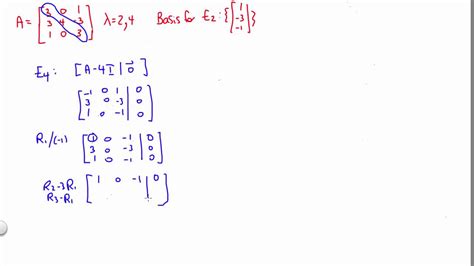 A = [3 0 1; 3 4 -3; 1 0 3] λ=2,4 Basis for E₂: {[1; -3; -1]}
E₄: [A-4I | 0⃗]
[-1 0 1 | 0; 3 0 -3 | 0; 1 0 -1 | 0]
R₁/(-1) [1 0 -1 | 0; 3 0 -3 | 0; 1 0 -1 | 0]
R₂-3R₁ [1 0 -1 | 0
R₃-R₁ ]